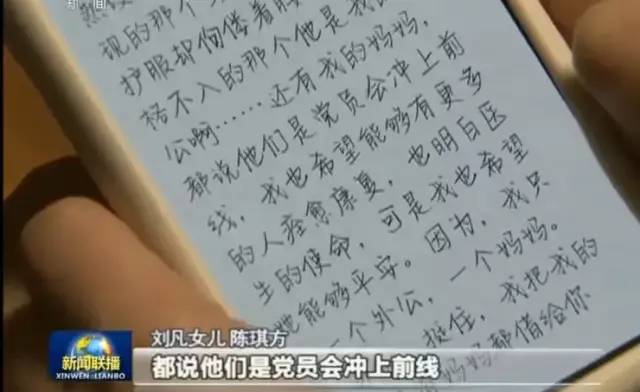 新闻
现的那个
护服却佝偻着
格不入的那个他是我
公啊……还有我的妈妈,
都说他们是党员会冲上前
线,我也希望能够有更多
的人痊愈康复,也明白医
生的使命,可是我也希望
她能够平安。因为,我只
一个外公,一个妈妈。
挺住,我把我的
妈都借给你
刘凡女儿 陈琪方
新闻联播
都说他们是党员会冲上前线
XINWEN LIANBO